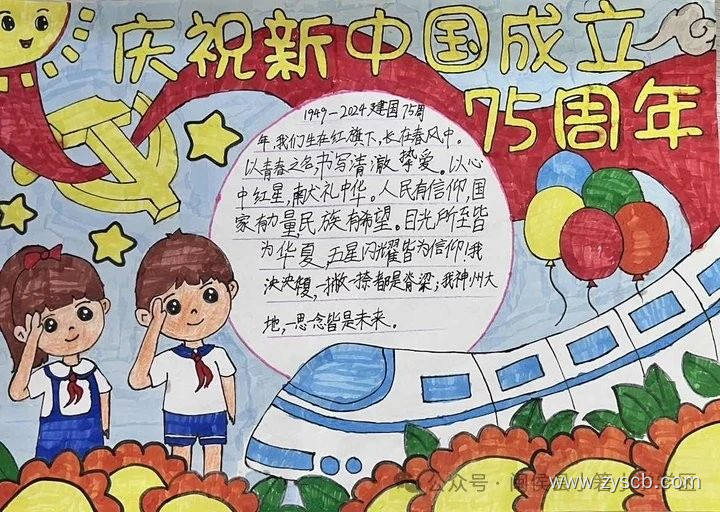 庆祝新中国成立
75周年
1949—2024建国75周
年,我们生在红旗下,长在春风中。
以青春之名,书写清澈挚爱。以心
中红星,献礼中华。人民有信仰,国
家有力量,民族有希望。目光所至皆
为华夏,五星闪耀皆为信仰!我
泱泱华夏,一撇一捺都是脊梁;我神州大
地,一思一念皆是未来。
公众号·闽侯
www.zyscb.com